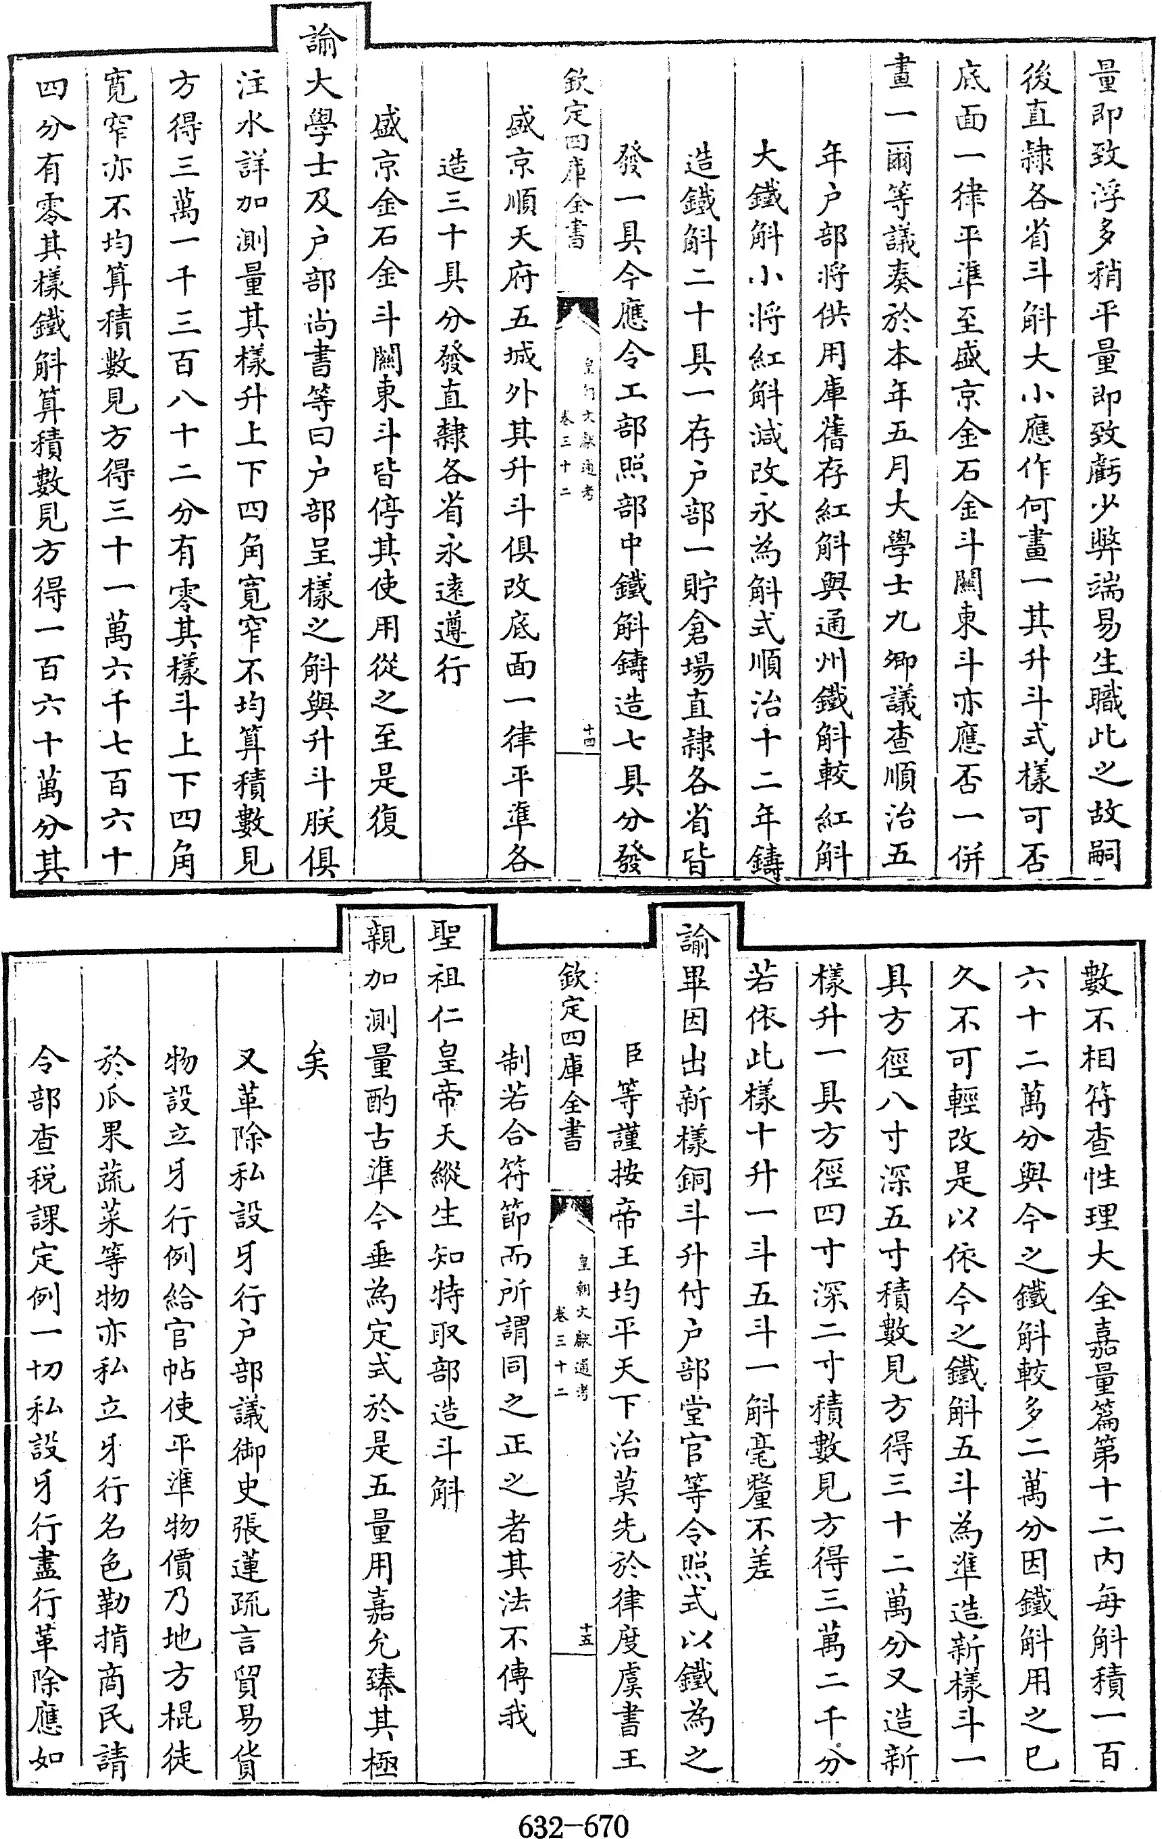 量即致浮多稍平量即致虧少弊端易生職此之故嗣
後直隸各省斗斛大小應作何畫一其升斗式樣可否
底面一律平準至盛京金石金斗關東斗亦應否一併
畫一爾等議奏於本年五月大學士九卿議查順治五
年户部將供用庫舊存紅斛與通州鐵斛較紅斛
大鐵斛小將紅斛減改永為斛式順治十二年鑄
造鐵斛二十具一存户部一貯倉場直隸各省皆
發一具今應令工部照部中鐵斛鑄造七具分發
欽定四庫全書
皇朝文獻通考
卷三十二
十四
盛京順天府五城外其升斗俱改底面一律平準各
造三十具分發直隸各省永遠遵行
盛京金石金斗關東斗皆停其使用從之至是復
諭大學士及户部尚書等曰户部呈樣之斛與升斗朕俱
注水詳加測量其樣升上下四角寬窄不均算積數見
方得三萬一千三百八十二分有零其樣斗上下四角
寬窄亦不均算積數見方得三十一萬六千七百六十
四分有零其樣鐵斛算積數見方得一百六十萬分其
數不相符查性理大全嘉量篇第十二內每斛積一百
六十二萬分與今之鐵斛較多二萬分因鐵斛用之已
久不可輕改是以依今之鐵斛五斗為準造新樣斗一
具方徑八寸深五寸積數見方得三十二萬分又造新
樣升一具方徑四寸深二寸積數見方得三萬二千分
若依此樣十升一斗五斗一斛毫釐不差
諭畢因出新樣銅斗升付户部堂官等令照式以鐵為之
臣等謹按帝王均平天下治莫先於律度虞書王
欽定四庫全書
皇朝文獻通考
卷三十二
十五
制若合符節而所謂同之正之者其法不傳我
聖祖仁皇帝天縱生知特取部造斗斛
親加測量酌古準今垂為定式於是五量用嘉允臻其極
矣
又革除私設牙行户部議御史張蓮疏言貿易貨
物設立牙行例給官帖使平準物價乃地方棍徒
於瓜果蔬菜等物亦私立牙行名色勒掯商民請
令部查税課定例一切私設牙行盡行革除應如
632-670